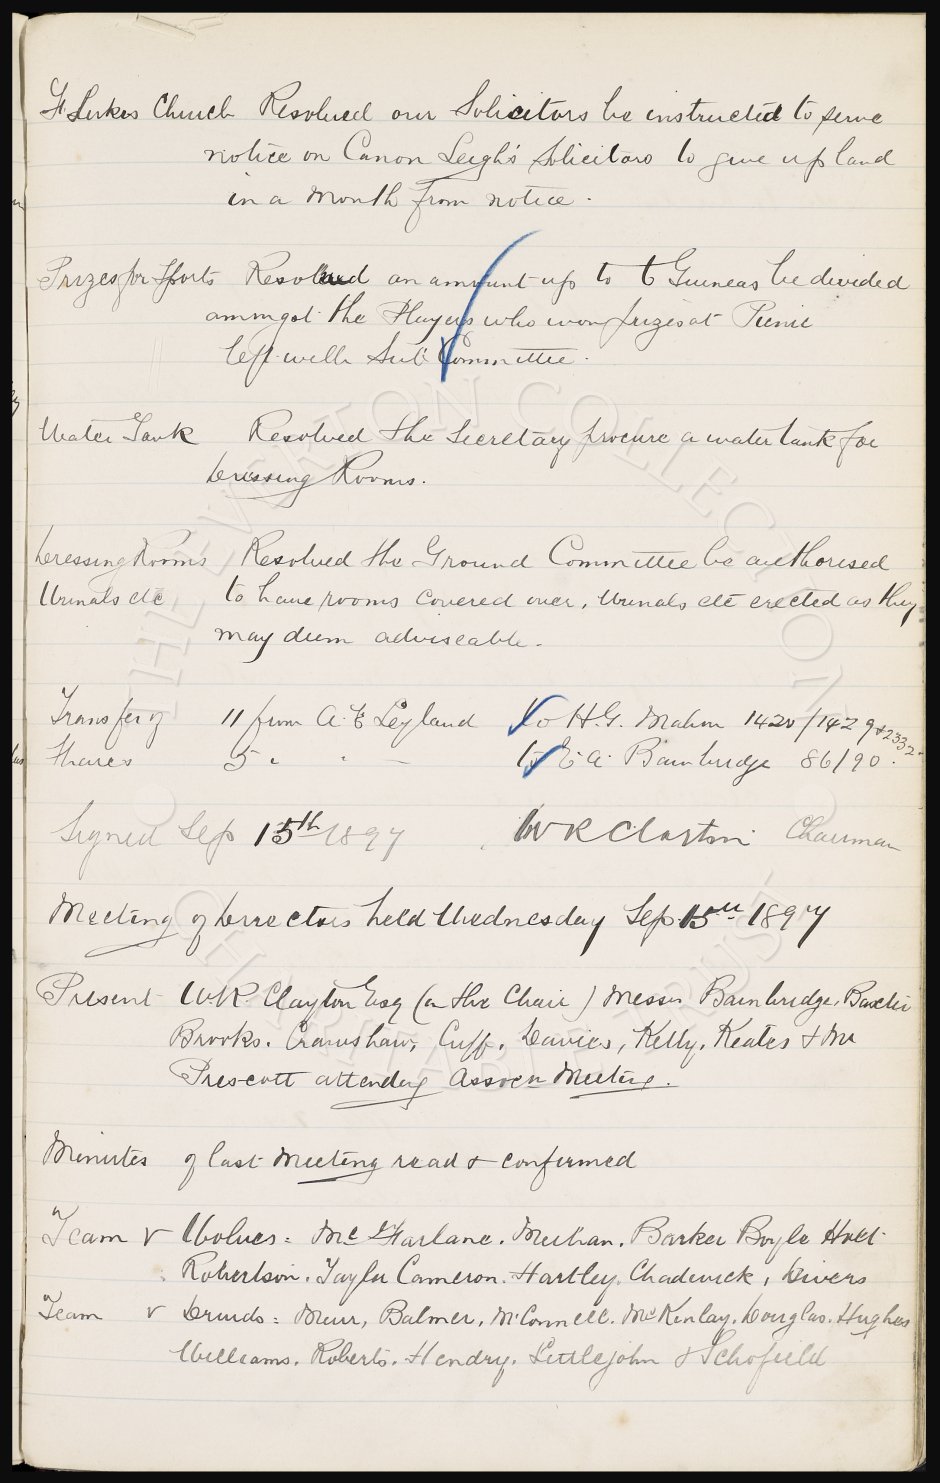 St Lukes Church Resolved our Solicitors be instructed to serve
notice on Canon Leigh's Solicitors to give up land
in a month from notice.
Prizes for Sports Resolved an amount up to 6 Guineas be divided
amongst the Players who won prizes at Picnic
left with Sub Committee.
Water Tank Resolved the Secretary procure a water tank for
Dressing Rooms.
Dressing Rooms Resolved the Ground Committee be authorised
Urinals etc to have rooms covered over, Urinals etc erected as they
may deem adviseable.
Transfer of 11 from A.E Leyland to H.G. Mahon 1420/1429 & 2332
Shares 5 " " — to E.A. Bainbridge 86/90.
Signed Sep 15th 1897 W R Clayton Chairman
Meeting of Directors held Wednesday Sep 15th 1897
Present W.R. Clayton Esq (in the Chair) Messrs Bainbridge, Baxter
Brooks. Crawshaw, Cuff, Davies, Kelly, Keates & Mr
Prescott attending Assocn Meeting.
Minutes of last Meeting read & confirmed
Team v Wolves: McFarlane. Meehan. Barker Boyle Holt
Robertson. Taylor Cameron. Hartley. Chadwick, Divers
Team v Druids: Muir, Balmer, McConnell. McKinlay. Douglas. Hughes
Williams. Roberts. Hendry. Littlejohn & Schofield
THE EVERTON COLLECTION
CHARITABLE TRUST